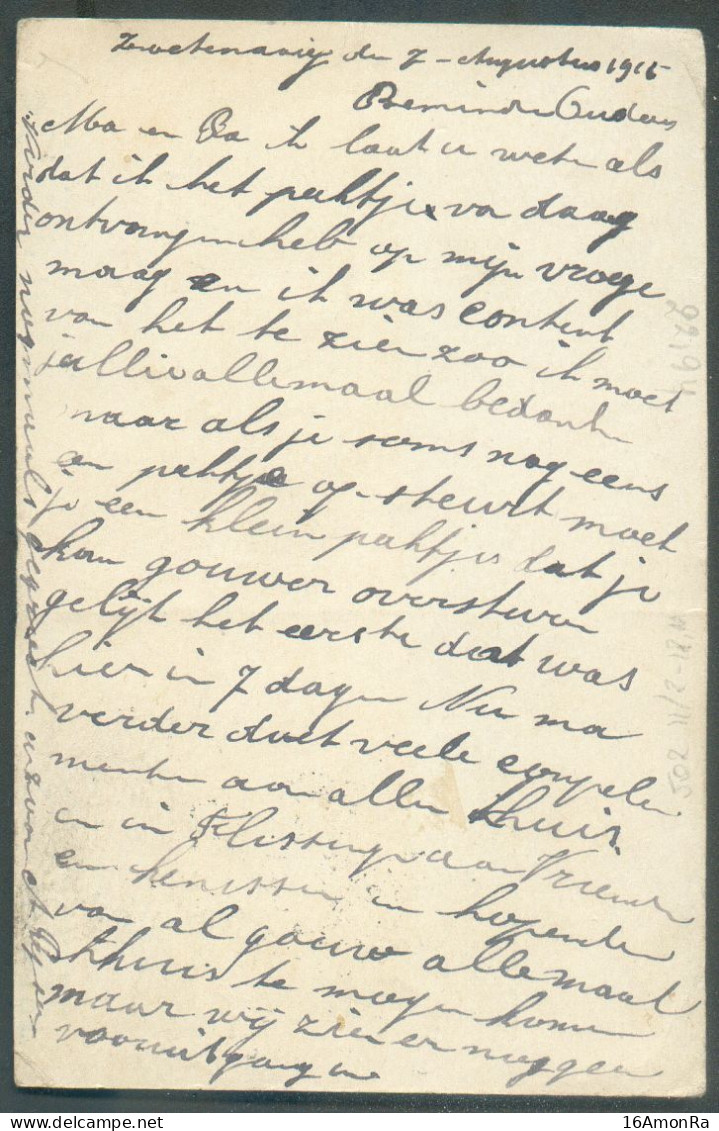 den 7 - Augustus 1915
Beminde Ouders
Ma en Pa ik laat u weten als
dat ik het paktje van daag
ontvangen heb op mijn vroege
maag en ik was content
van het te zien zoo ik moet
jullie allemaal bedanken
maar als je soms nog eens
en paktje op steurt moet
je een klein paktje dat je
kan gouwer oversturen
gelijk het eerste dat was
hier in 7 dagen Nu ma
verder doet veele compele
menten aan allen thuis
en in Flissingen aan Vrienden
en kenissen en hopenden
van al gouw allemaal
thuis te mogen komen
maar wij zien er nog geen
vooruitgang in
Verder nogmaals
16AmonRa